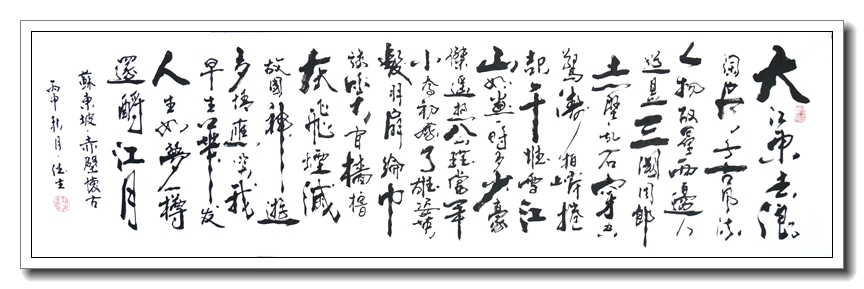 大江東去浪
淘尽千古风流
人物故垒西邊人
道是三國周郎
赤壁乱石穿空
驚濤拍岸捲
起千堆雪江
山如畫時多少豪
傑遥想公瑾當年
小喬初嫁了雄姿英
髮羽扇綸巾
談笑間檣櫓
灰飛煙滅
故國神遊
多情應笑我
早生華发
人生如夢一樽
還酹江月
蘇東坡·赤壁懷古
丙申秋月